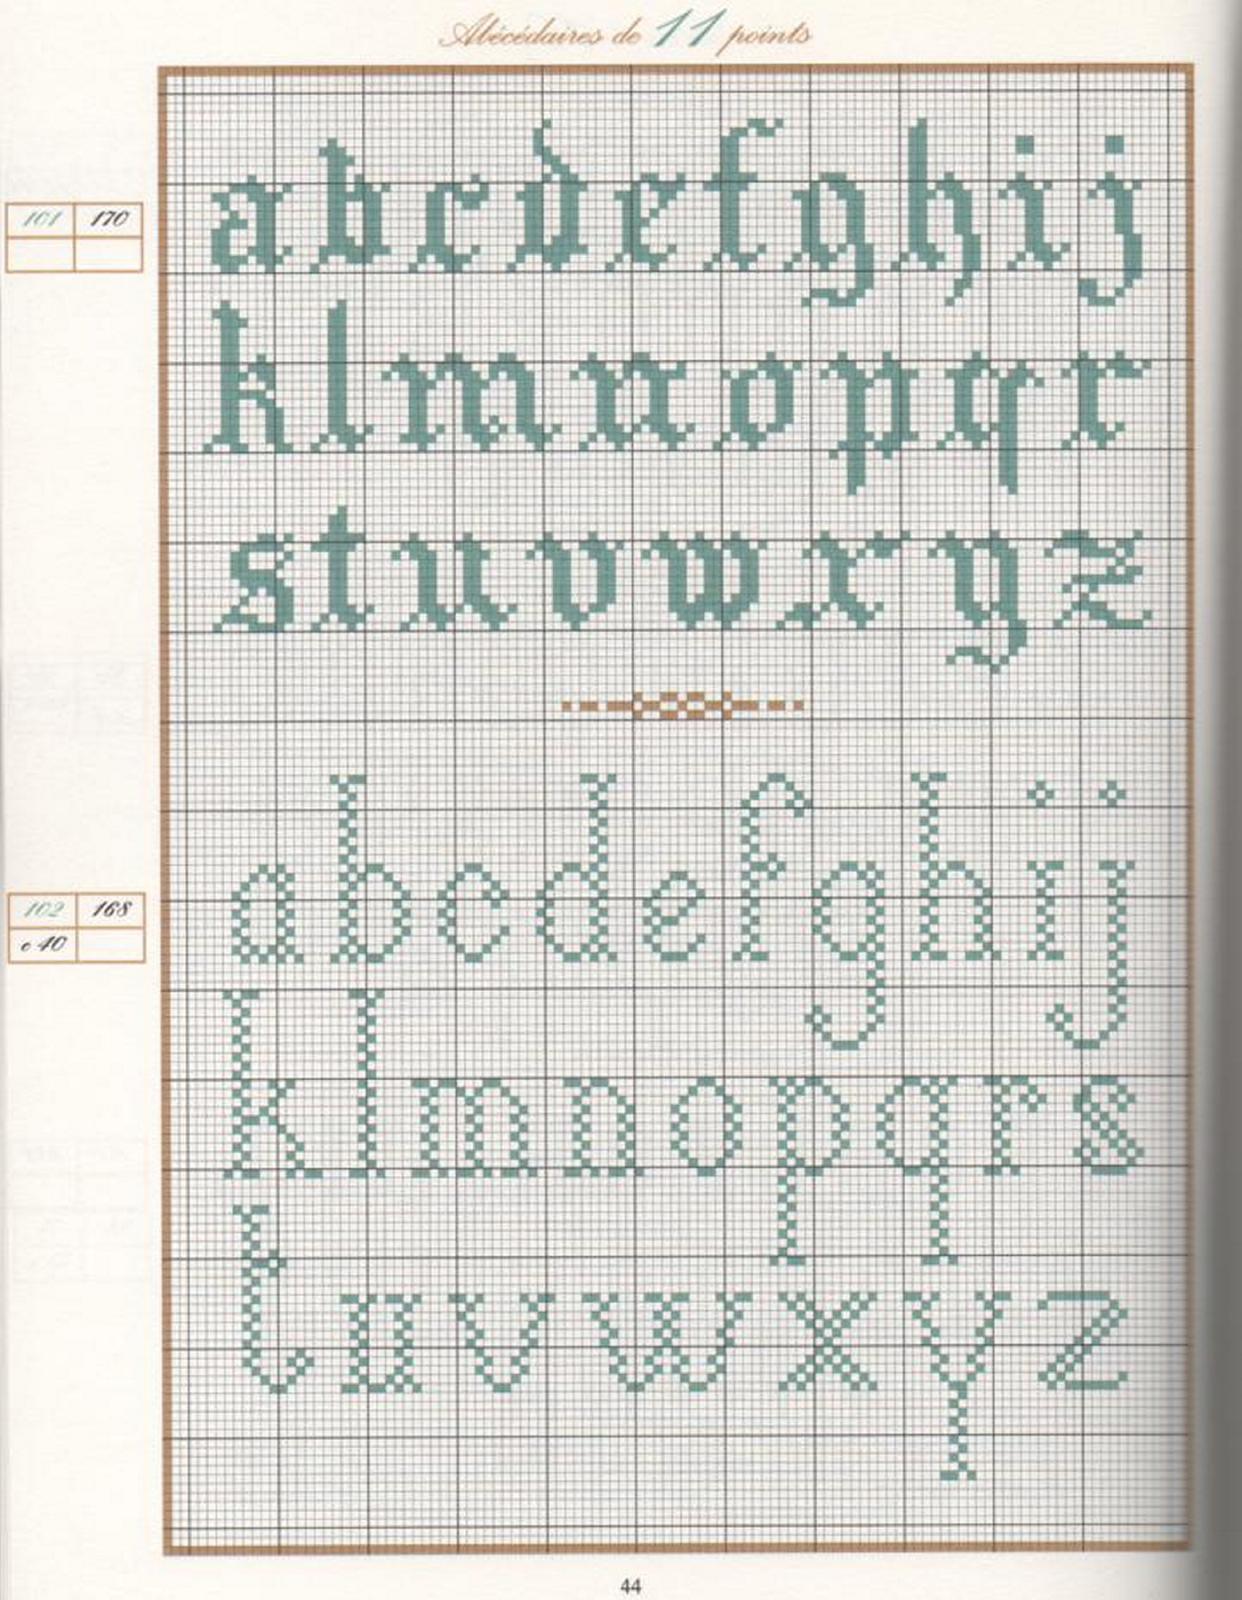 Abécédaires de 11 points
101 170
abcdefghij
klmnopqr
stuvwxyz
102 168
c 40
abcdefghij
klmnopqrs
tuvwxyz
44